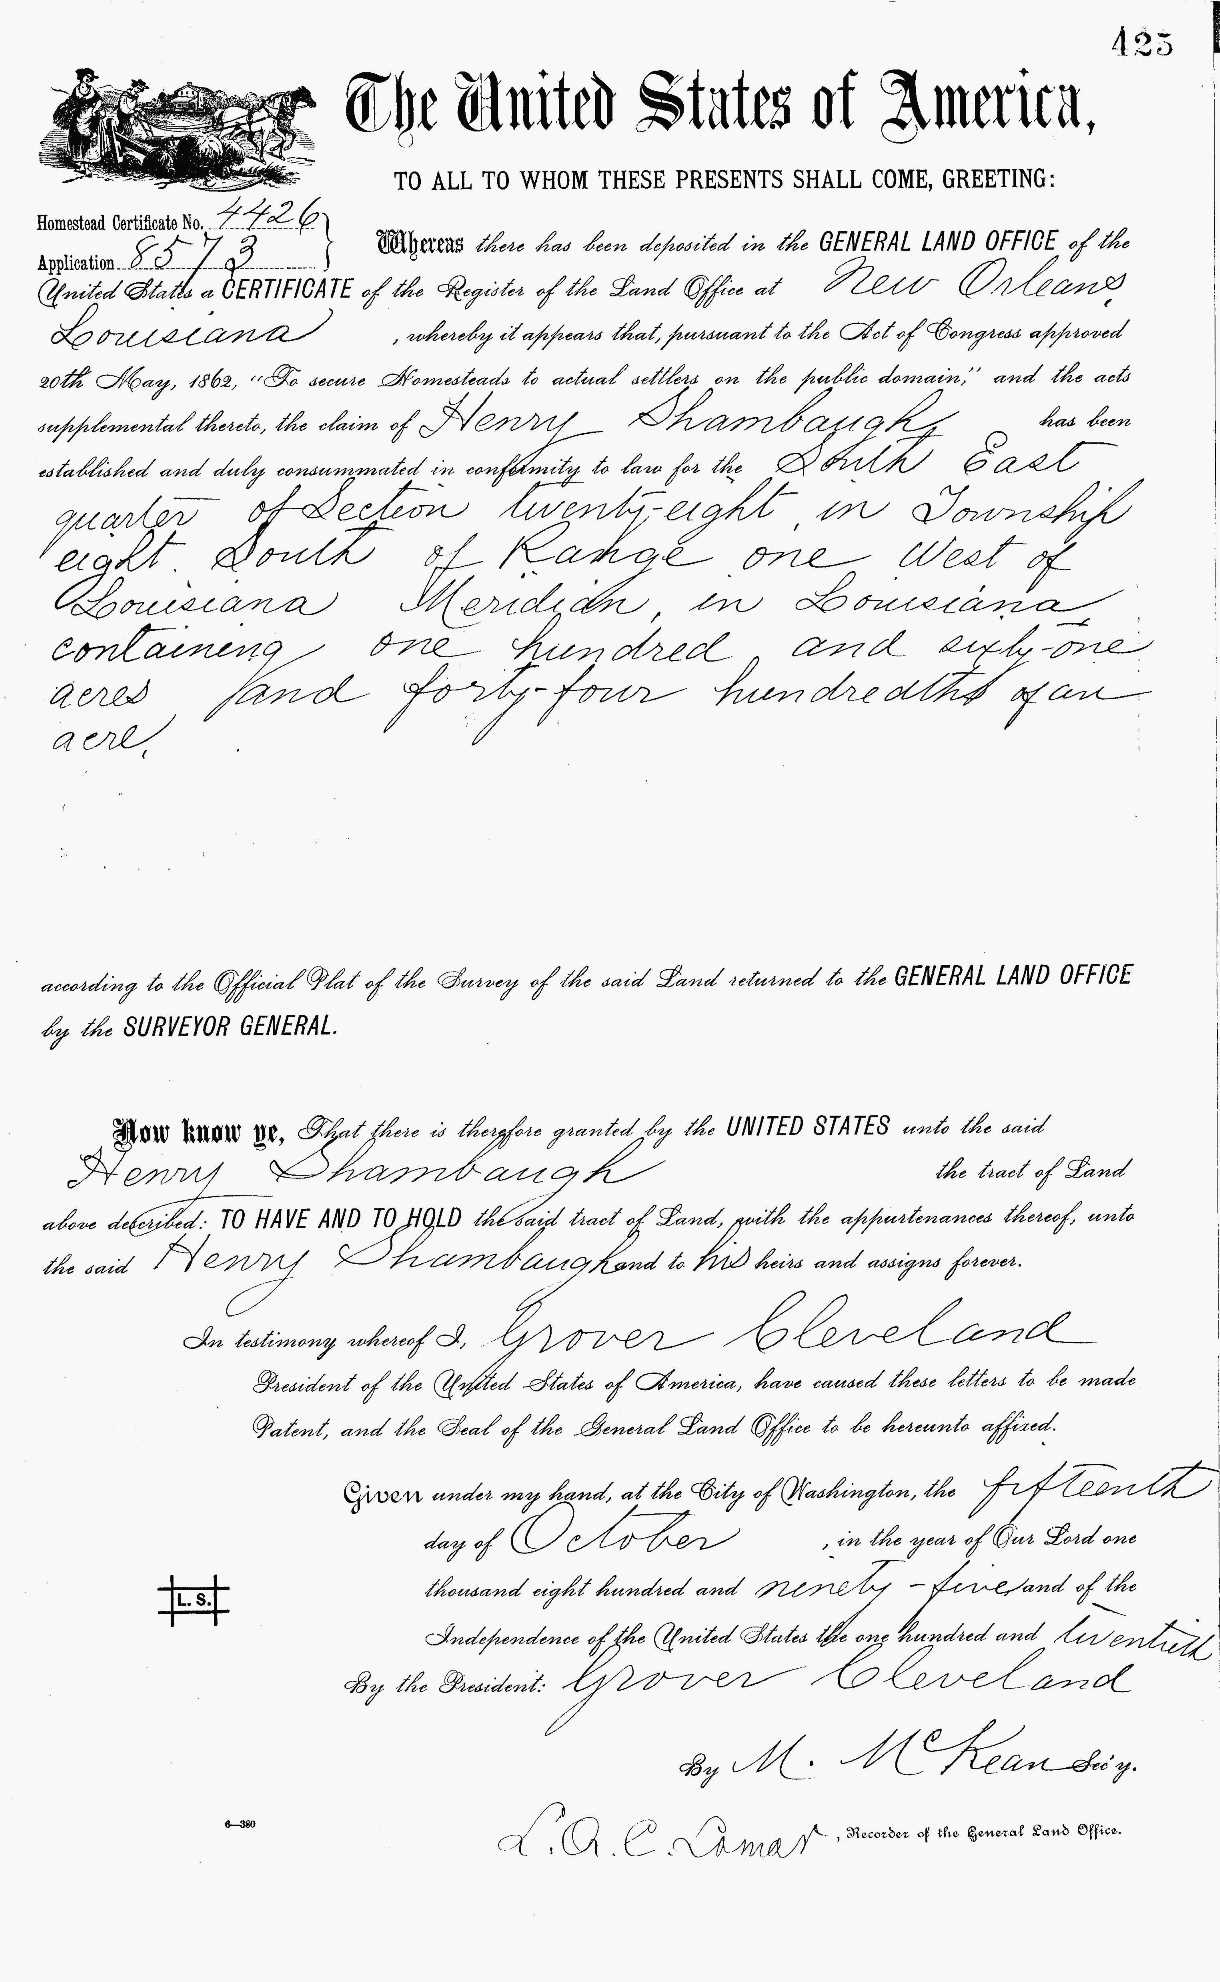 425
The United States of America,
TO ALL TO WHOM THESE PRESENTS SHALL COME, GREETING:
Homestead Certificate No. 4426
Application 8573
Whereas there has been deposited in the GENERAL LAND OFFICE of the
United States a CERTIFICATE of the Register of the Land Office at New Orleans,
Louisiana , whereby it appears that, pursuant to the Act of Congress approved
20th May, 1862, "To secure Homesteads to actual settlers on the public domain," and the acts
supplemental thereto, the claim of Henry Shambaugh, has been
established and duly consummated in conformity to law for the South East
quarter of Section twenty-eight in Township
eight South of Range one West of
Louisiana Meridian, in Louisiana,
containing one hundred and sixty-one
acres and forty-four hundredths of an
acre.
according to the Official Plat of the Survey of the said Land returned to the GENERAL LAND OFFICE
by the SURVEYOR GENERAL.
Now know ye, That there is therefore granted by the UNITED STATES unto the said
Henry Shambaugh the tract of Land
above described: TO HAVE AND TO HOLD the said tract of Land, with the appurtenances thereof, unto
the said Henry Shambaugh and to his heirs and assigns forever.
In testimony whereof I, Grover Cleveland
President of the United States of America, have caused these letters to be made
Patent, and the Seal of the General Land Office to be hereunto affixed.
Given under my hand, at the City of Washington, the fifteenth
day of October , in the year of Our Lord one
thousand eight hundred and ninety-five and of the
Independence of the United States the one hundred and twentieth
L. S.
By the President: Grover Cleveland
By M. McKean Sec'y.
6—380
L. Q. C. Lamar , Recorder of the General Land Office.